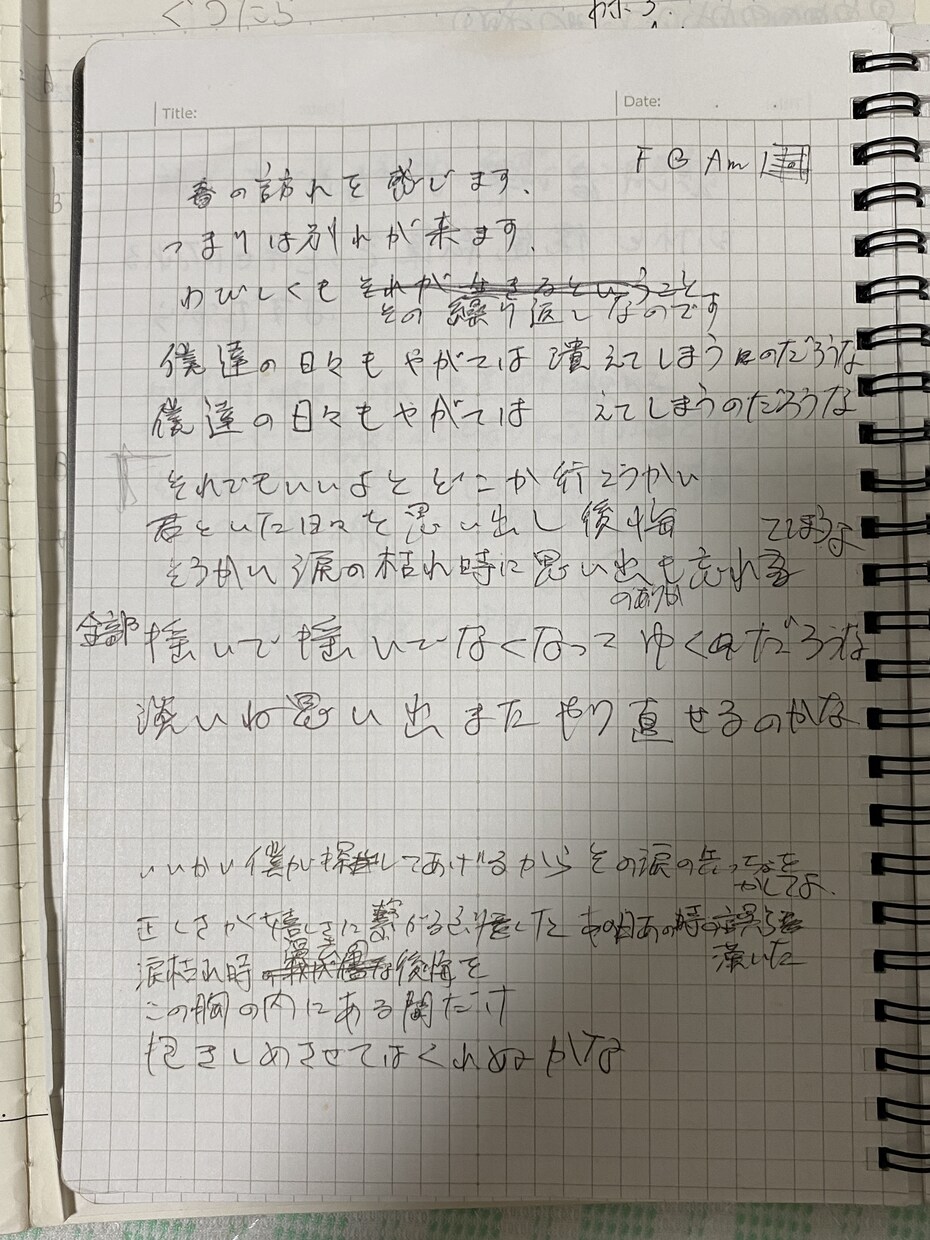 ぐうたら
Title:
Date:
F G Am
春の訪れを感じます、
つまりは別れが来ます、
わびしくも それが生きるということ
その繰り返しなのです
僕達の日々もやがては潰えてしまうのだろうな
僕達の日々もやがては えてしまうのだろうな
それでもいいよと どこか行こうかい
君といた日々を思い出し後悔 てしまうよ
そうかい 涙の枯れ時に思い出も忘れる
のありか
全部 揺いで揺いでなくなってゆくのだろうな
淡いね思い出またやり直せるのかな
いいかい僕が探してあげるから その涙の
かしてよ、
正しさが嬉しさに繋がる した あの日あの時の
涙枯れ時 後悔を
濡いた
この胸の内にある間だけ
抱きしめさせてはくれぬかな